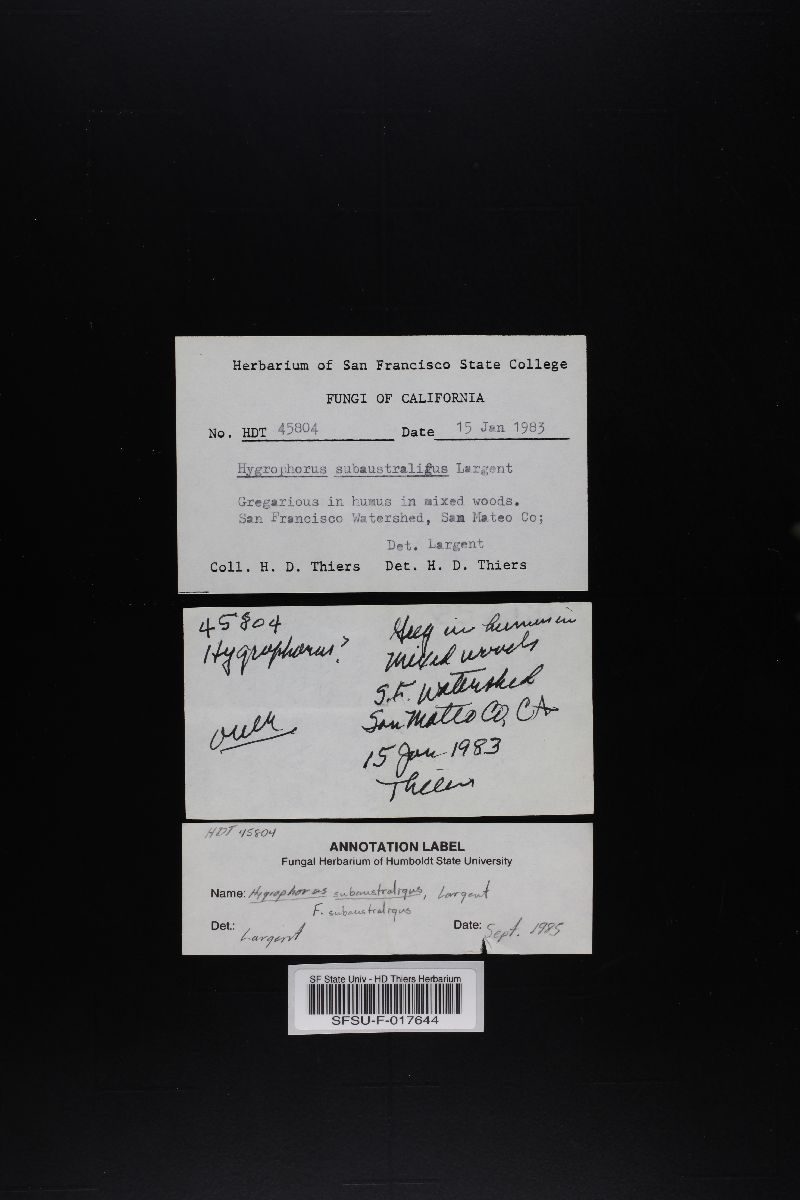 Herbarium of San Francisco State College
FUNGI OF CALIFORNIA
No. HDT 45804 Date 15 Jan 1983
Hygrophorus subaustraligus Largent
Gregarious in humus in mixed woods.
San Francisco Watershed, San Mateo Co;
Det. Largent
Coll. H. D. Thiers Det. H. D. Thiers
45804
Hygrophorus?
over
Greg in humus in
mixed woods
S.F. Watershed
San Mateo Co, CA
15 Jan 1983
Thiers
HDT 45804
ANNOTATION LABEL
Fungal Herbarium of Humboldt State University
Name: Hygrophorus subaustraligus, Largent
F. subaustraligus
Det.: Largent Date: Sept. 1985
SF State Univ - HD Thiers Herbarium
SFSU-F-017644